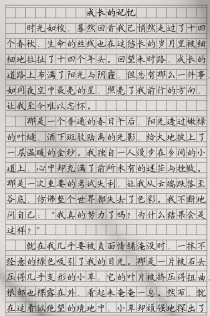 成长的记忆
时光如梭，蓦然回首我已悄然走过了十四
个春秋，生命的丝线地在这悠长的岁月里被细
细地拉过了十四个年头。回望来时路，成长的
道路上布满了阳光与阴霾，但也有那么一件事
如同夜空中最亮的星，照亮了我前行的方向，
让我至今难以忘怀。
那是一个普通的春日午后，阳光透过嫩绿
的叶缝，洒下斑驳陆离的光影，给大地披上了
一层温暖的金纱。我独自一人漫步在乡间的小
道上，心中却充满了前所未有的迷茫与挫败。
那是一次重要的考试失利，让我从云端跌落至
谷底，仿佛整个世界都失去了色彩。我不断地
问自己：“我真的努力了吗？为什么结果会是
这样？”
就在我几乎要被负面情绪淹没时，一抹不
经意的绿色吸引了我的目光。那是一片被石头
压得几乎变形的小草，它的叶片被挤压得扭曲
根部也裸露在外，看起来奄奄一息。然而，就
在这看似绝望的境地中，小草却顽强地探出了